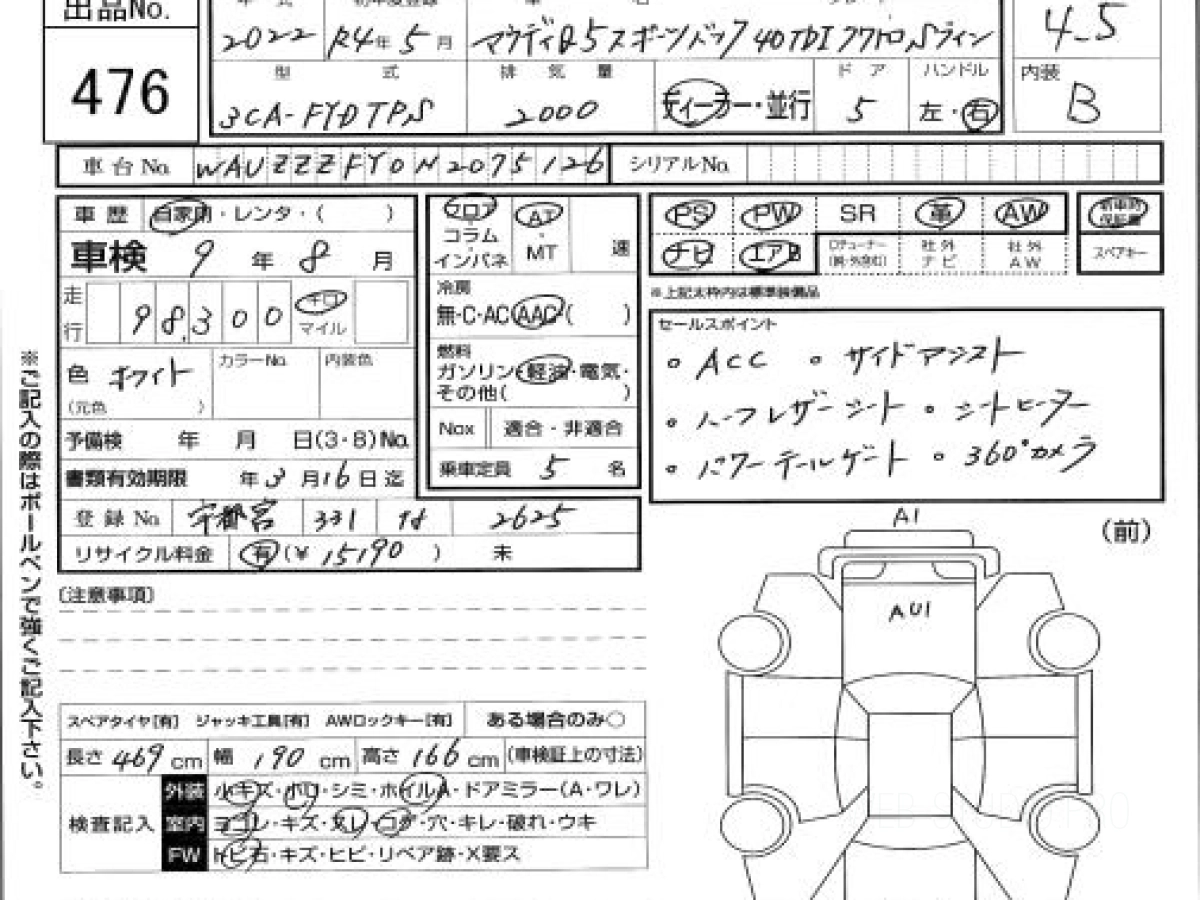 出品No.
476
年式 初年度登録 車名 グレード
2022 R4年5月 アウディQ5スポーツバック 40TDIクワトロ Sライン
4.5
型式 排気量 ドア ハンドル
3CA-FYDTPS 2000 ディーラー・並行 5 左・右
内装
B
車台No. WAUZZZFY0N2075126 シリアルNo.
車歴 自家用・レンタ・( )
車検 9年8月
走行 98,300 キロ マイル
色 ホワイト
(元色 )
カラーNo. 内装色
予備検 年 月 日(3・8)No.
書類有効期限 年3月16日迄
登録No. 宇都宮 331 2625
リサイクル料金 有(¥15190) 未
フロア・コラム・インパネ
AT・MT 速
冷房
無・C・AC・AAC( )
燃料
ガソリン・軽油・電気・
その他( )
Nox 適合・非適合
乗車定員 5 名
PS PW SR 革 AW 新車時保証書
ナビ エアB Dチューナー 社外ナビ 社外AW スペアキー
※上記太枠内は標準装備品
セールスポイント
○ACC ○サイドアシスト
○ハーフレザーシート ○シートヒーター
○パワーテールゲート ○360°カメラ
A1
(前)
AU1
〔注意事項〕
スペアタイヤ[有] ジャッキ工具[有] AWロックキー[有] ある場合のみ○
長さ469cm 幅190cm 高さ166cm (車検証上の寸法)
検査記入
外装 小キズ・小凹・シミ・ホイルA・ドアミラー(A・ワレ)
室内 ヨゴレ・キズ・スレ・コゲ・穴・キレ・破れ・ウキ
FW トビ石・キズ・ヒビ・リペア跡・X要ス
※ご記入の際はボールペンで強くご記入下さい。